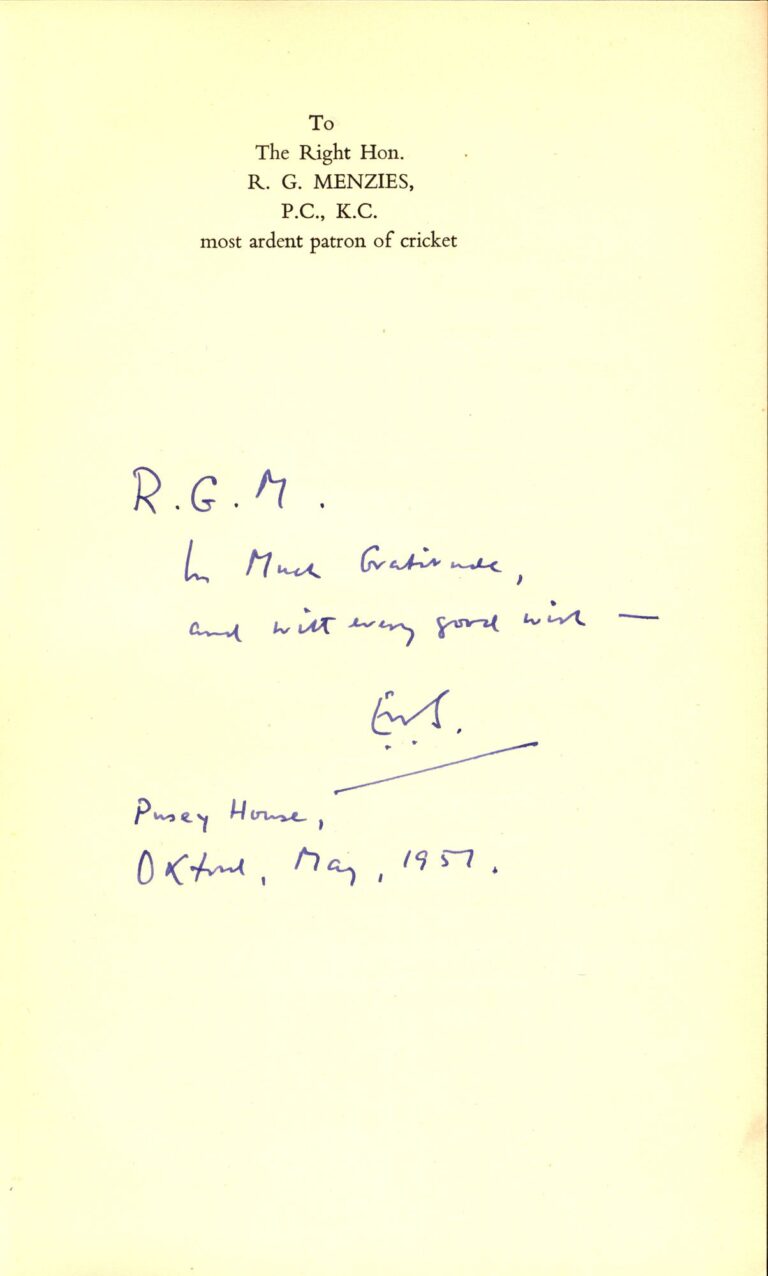 To
The Right Hon.
R. G. MENZIES,
P.C., K.C.
most ardent patron of cricket
R.G.M.
In Much Gratitude,
and with every good wish —
EWS.
Pusey House,
Oxford, May, 1951.